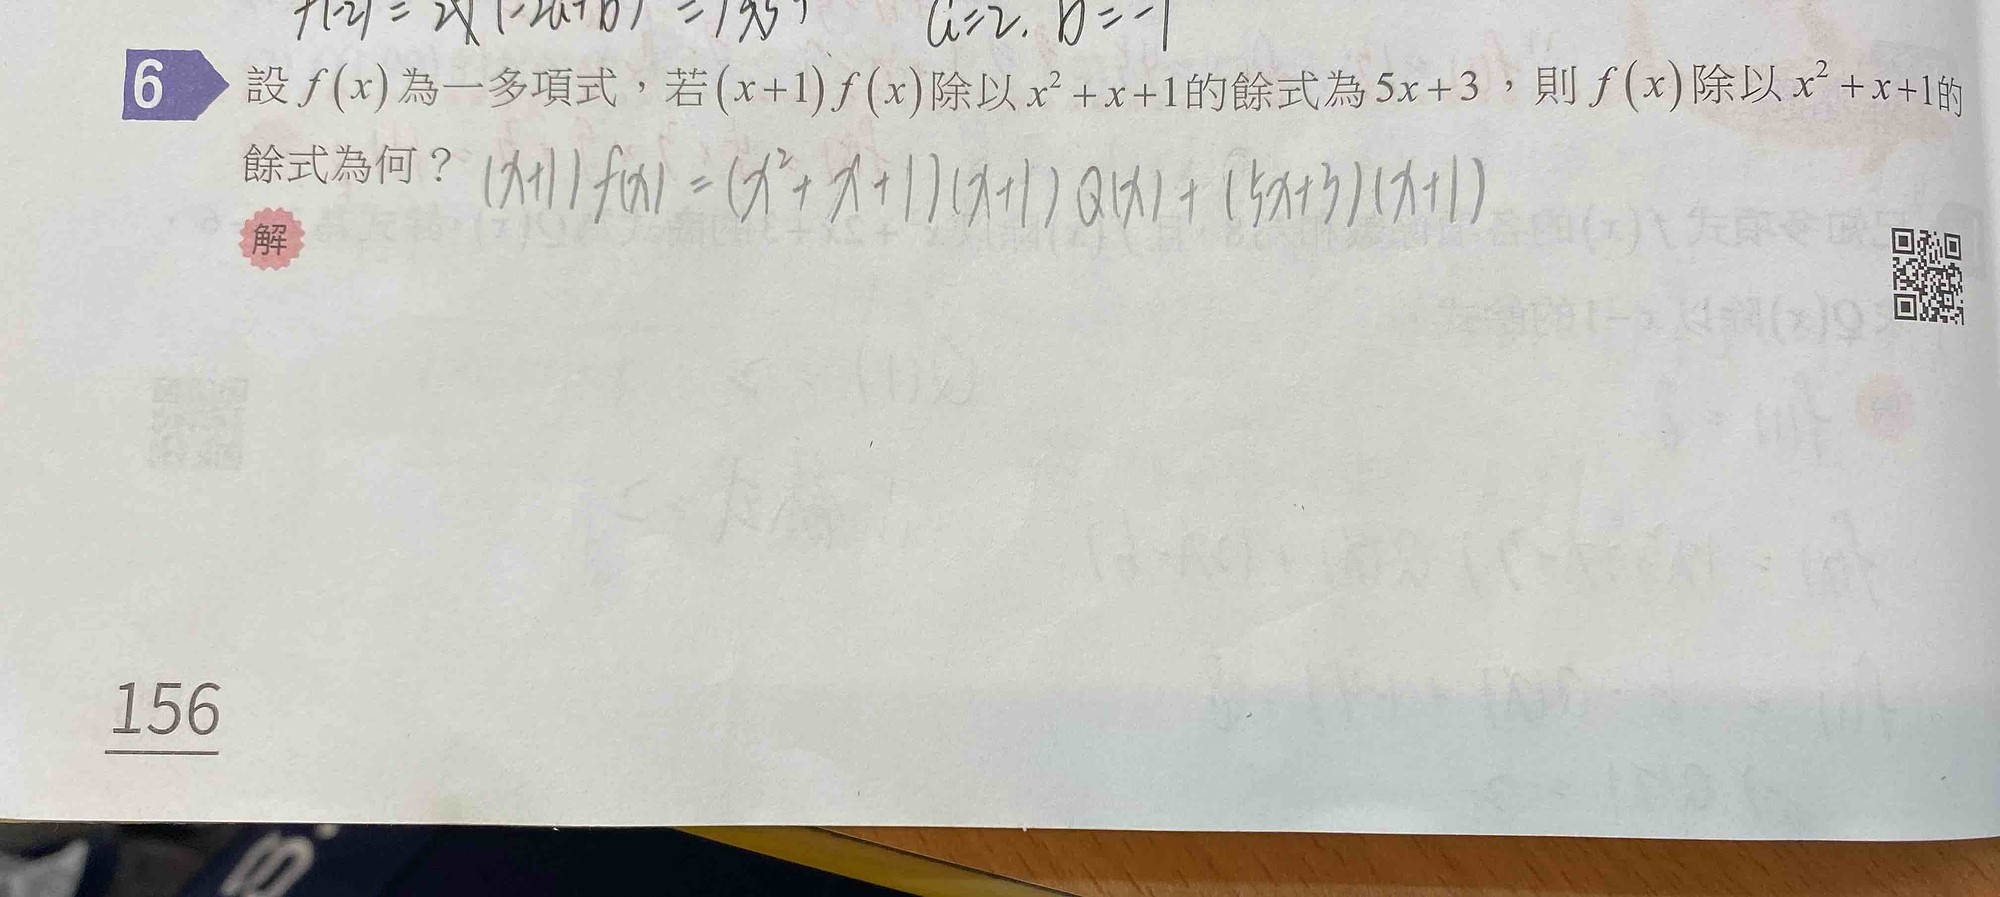 a=2. b=-1
6 設f(x)為一多項式，若(x+1)f(x)除以x²+x+1的餘式為5x+3，則f(x)除以x²+x+1的
餘式為何？ (x+1)f(x)=(x²+x+1)(x+1)Q(x)+(5x+3)(x+1)
解
156